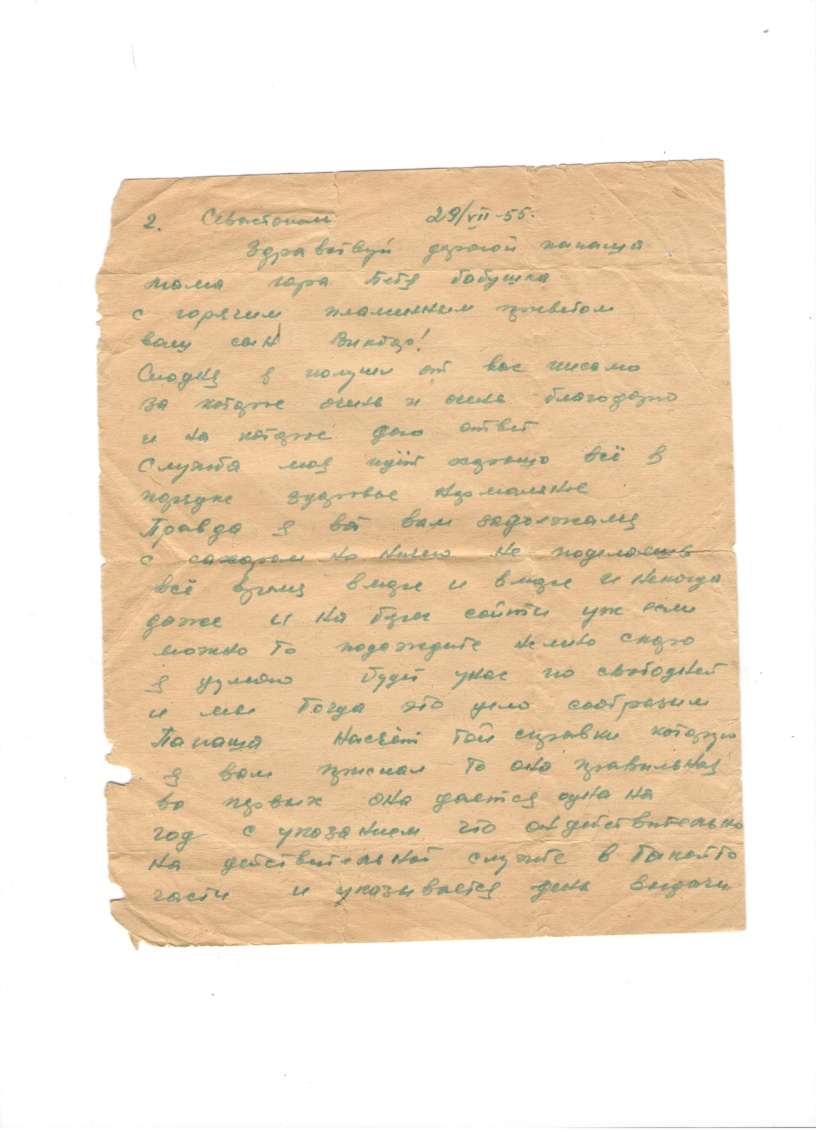 г. Севастополь 29/VII-55.
Здравствуй дорогой папаша
мама Петя бабушка
с горячим пламенным приветом
ваш сын Виктор!
Сегодня я получил от вас письмо
за которое очень и очень благодарю
и на которое даю ответ
Служба моя идёт хорошо всё в
порядке здоровье нормальное
Правда я вот вам задолжался
с сахаром но ничего не поделаешь
всё время в море и в море и некогда
даже и на берег сойти уж если
можно то подождите немного скоро
я думаю будет у нас по свободней
и мы тогда это дело сообразим
Папаша насчёт той справки которую
я вам прислал то она правильная
во первых она дается одна на
год с указанием что он действительно
на действительной службе в такой то
части и указывается день выдачи